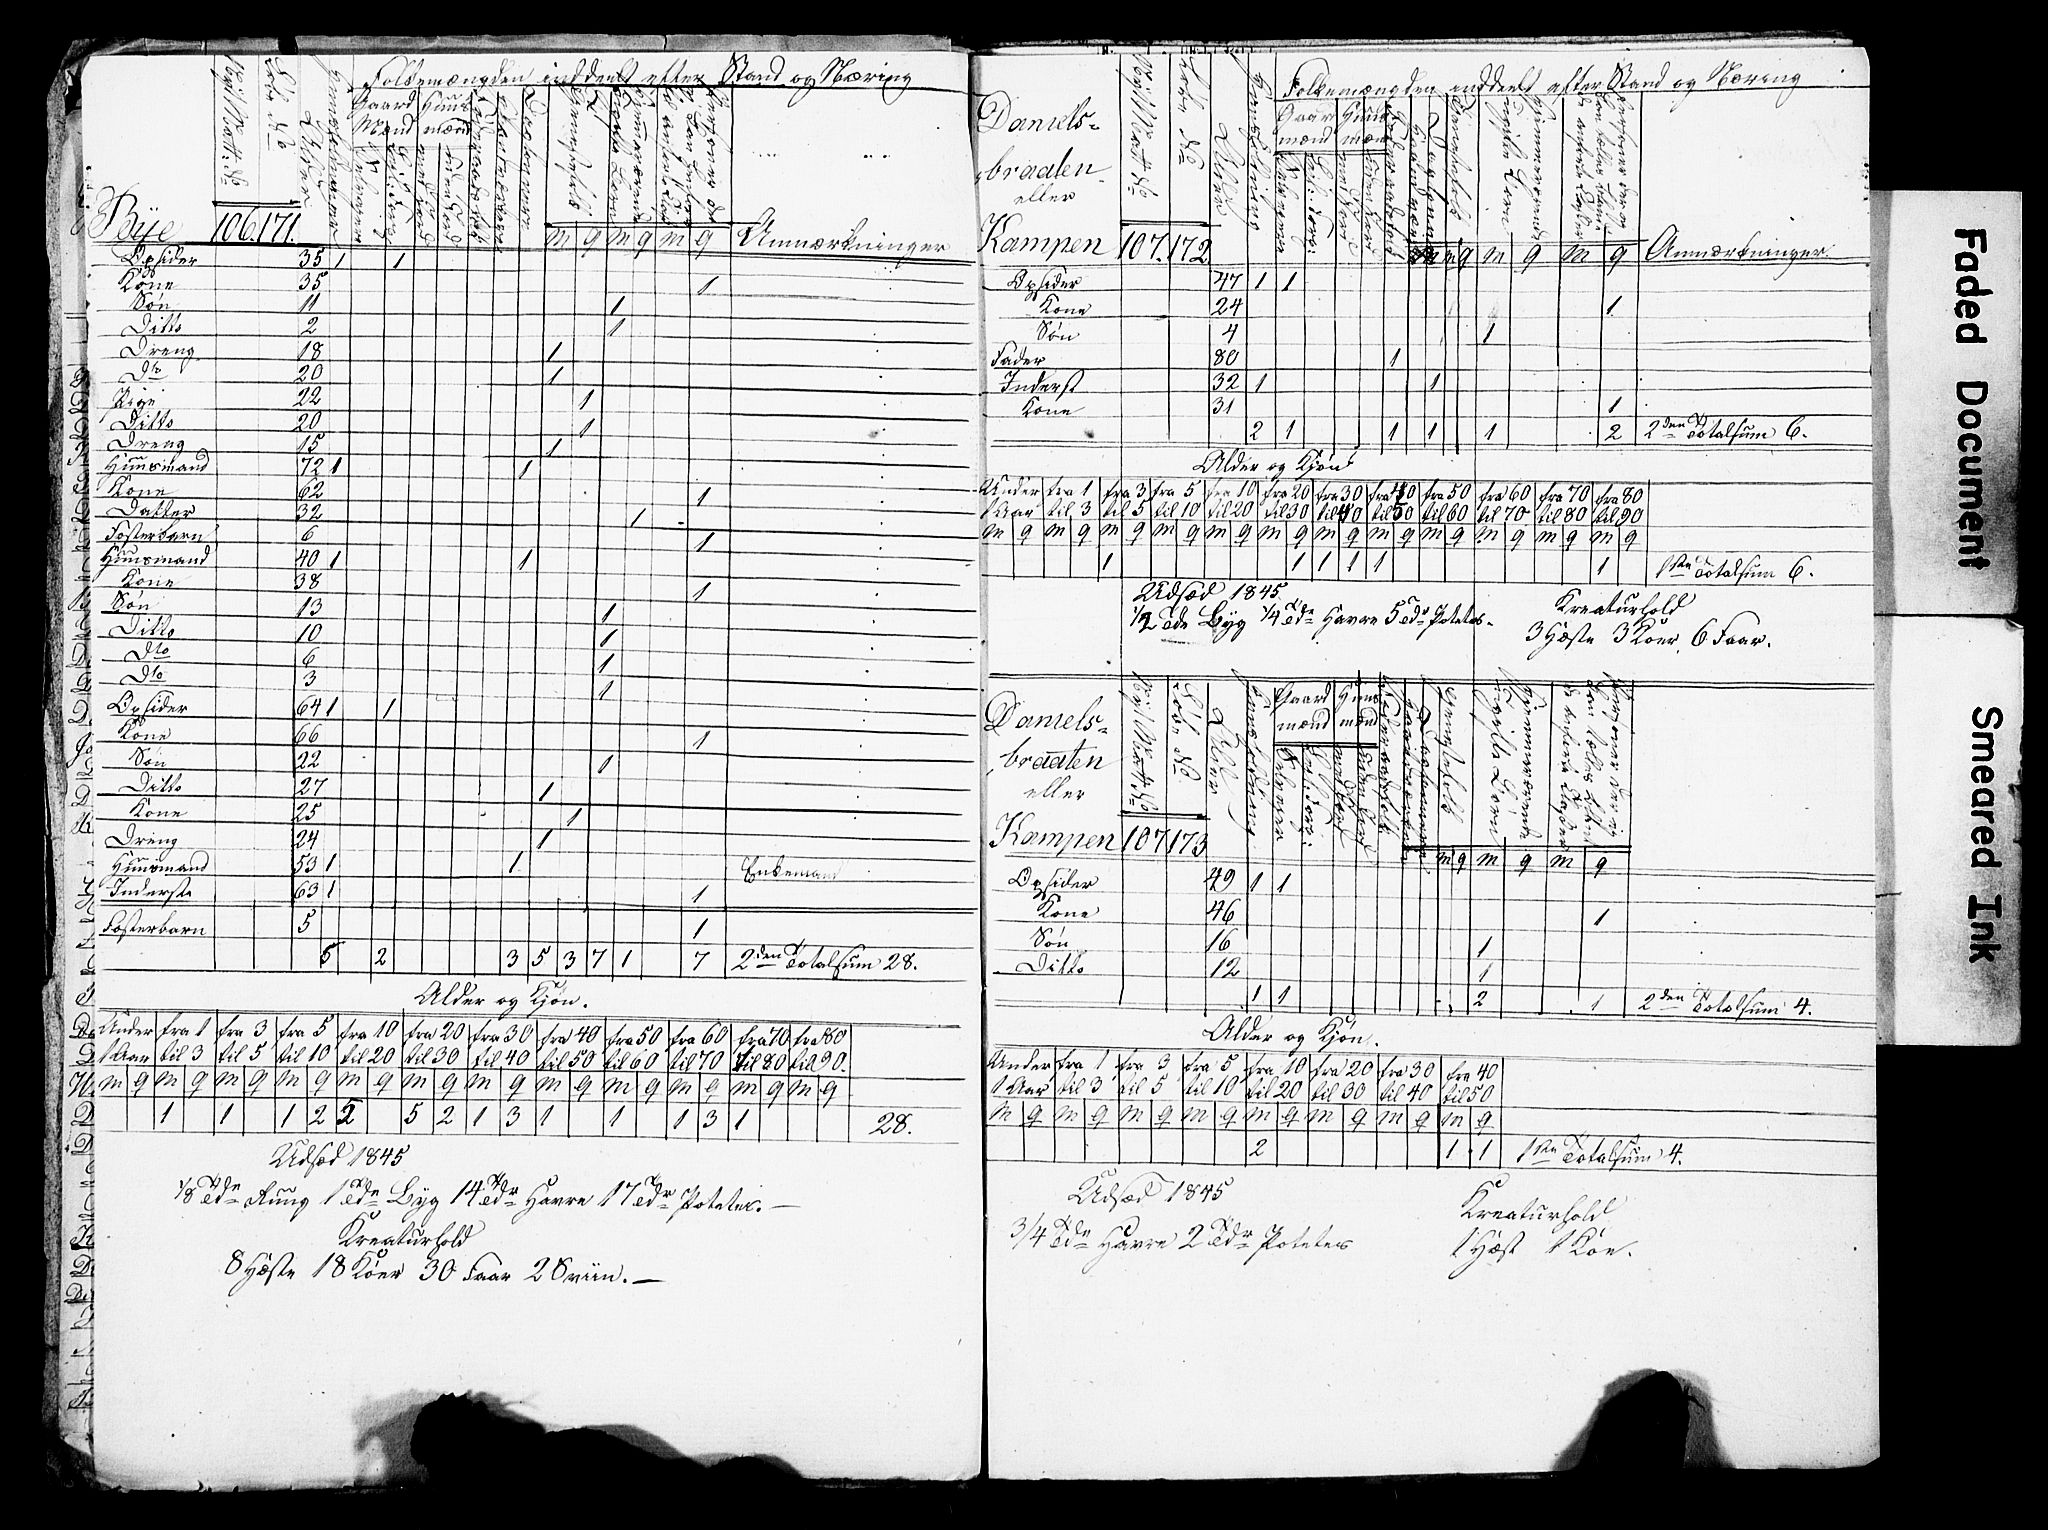 Folkemængden inddeelt efter Stand og Næring
Gaard Mænd
Huus mænd
Bye 106. 171. m q m q m q Anmærkninger
Opsider 35 1 1
Kone 35 1
Søn 11 1
Ditto 2 1
Dreng 18 1
Dto 20 1
Pige 22 1
Ditto 20 1
Dreng 15 1
Huusmand 72 1 1
Kone 62 1
Datter 32 1
Fosterbarn 6 1
Huusmand 40 1 1
Kone 38 1
Søn 13 1
Ditto 10 1
Dto 6 1
Dto 3 1
Opsider 64 1 1
Kone 66 1
Søn 22 1
Ditto 27 1
Kone 25 1
Dreng 24 1
Huusmand 53 1 1 Enkemand
Inderste 63 1 1
Fosterbarn 5 1
5 2 3 5 3 7 1 7 2den Totalsum 28.
Alder og Kjøn.
Under fra 1 fra 3 fra 5 fra 10 fra 20 fra 30 fra 40 fra 50 fra 60 fra 70 fra 80
1 Aar til 3 til 5 til 10 til 20 til 30 til 40 til 50 til 60 til 70 til 80 til 90.
m q m q m q m q m q m q m q m q m q m q m q m q
1 1 1 2 5 5 2 1 3 1 1 1 3 1 28.
Udsæd 1845
1/8 Tde Ruug 1 Tde Byg 14 Tdr Havre 17 Tdr Poteter. —
Kreaturhold
8 Hæste 18 Köer 30 Faar 2 Sviin. —
Folkemængden inddeelt efter Stand og Næring
Daniels-
braaten
eller
Kampen 107. 172 m q m q m q Anmærkninger.
Opsider 47 1 1
Kone 24 1
Søn 4 1
Fader 80 1
Inderst 32 1 1
Kone 31 1
2 1 1 1 1 2 2den Totalsum 6.
Alder og Kjøn
Under fra 1 fra 3 fra 5 fra 10 fra 20 fra 30 fra 40 fra 50 fra 60 fra 70 fra 80
1 Aar til 3 til 5 til 10 til 20 til 30 til 40 til 50 til 60 til 70 til 80 til 90
m q m q m q m q m q m q m q m q m q m q m q m q
1 1 1 1 1 1 1ste Totalsum 6.
Udsæd 1845
1/2 Tde Byg 1/4 Tde Havre 5 Tdr Poteter.
Kreaturhold
3 Hæste 3 Koer, 6 Faar.
Daniels-
braaten
eller
Kampen 107. 173 m q m q m q
Gaard mænd
Huus mænd
Opsider 49 1 1
Kone 46 1
Søn 16 1
Ditto 12 1
1 1 2 1 2den Totalsum 4.
Alder og Kjøn.
Under fra 1 fra 3 fra 5 fra 10 fra 20 fra 30 fra 40
1 Aar til 3 til 5 til 10 til 20 til 30 til 40 til 50
m q m q m q m q m q m q m q m q
2 1 1 1ste Totalsum 4.
Udsæd 1845
3/4 Tde Havre 2 Tdr Poteter
Kreaturhold
1 Hæst 1 Köe.
Faded Document
Smeared Ink